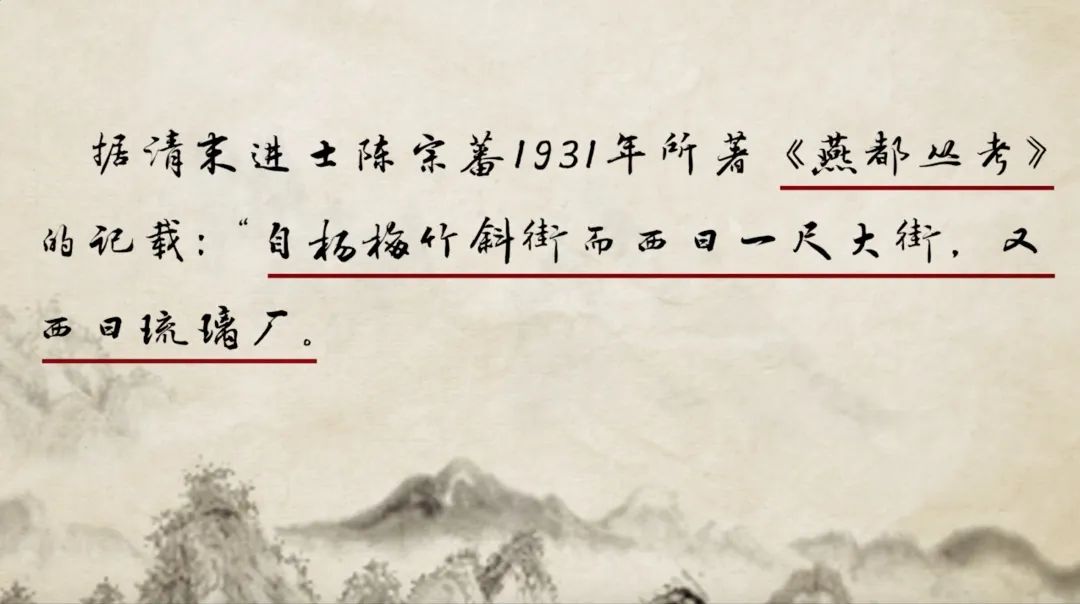 据清末进士陈宗蕃1931年所著《燕都丛考》
的记载：“自杨梅竹斜街而西曰一尺大街，又
西曰琉璃厂。